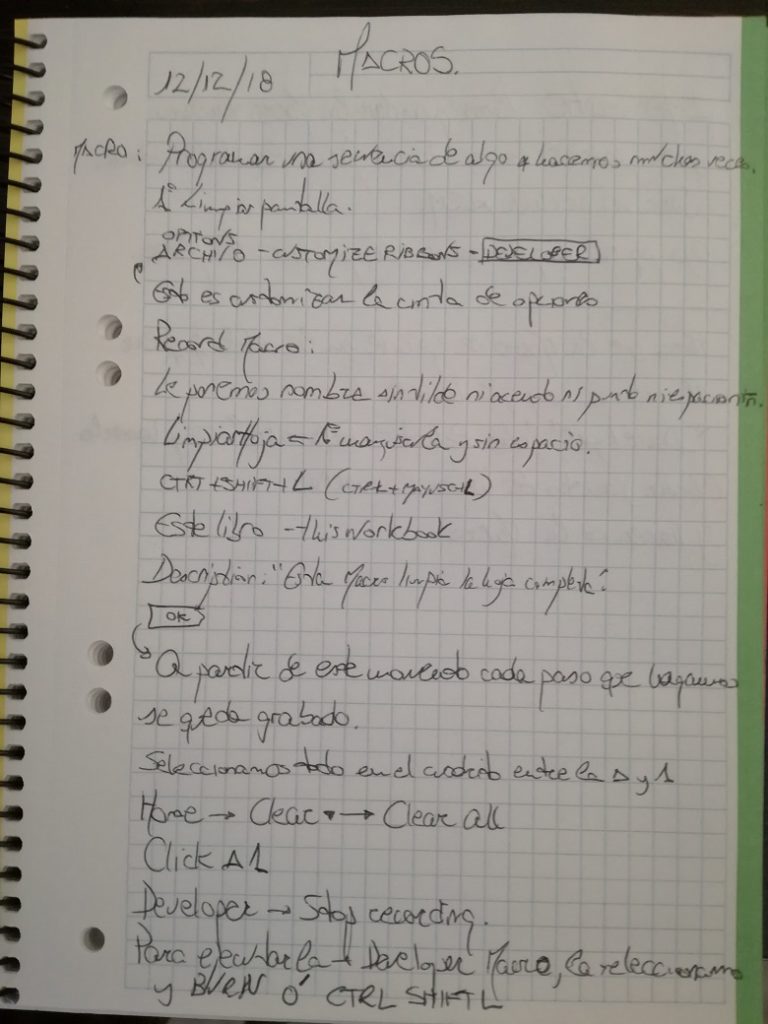 MACROS.
12/12/18
MACRO: Programar una secuencia de algo q hacemos muchas veces.
1º Limpiar pantalla.
OPITONS
ARCHIVO - CUSTOMIZE RIBBONS - DEVELOPER
Esto es customizar la cinta de opciones
Record Macro:
Le ponemos nombre sin tilde ni acento ni punto ni espacio ni ñ.
LimpiarHoja = 1ª mayúscula y sin espacio.
CTRT+SHIFT+L (CTRL+MAYUSC+L)
Este libro - this workbook
Description: "Esta Macro limpia la hoja completa".
OK
A partir de este momento cada paso que hagamos
se queda grabado.
Seleccionamos todo en el cuadrito entre la A y 1
Home → Clear ▾ → Clear all
Click A1
Developer → Stop recording.
Para ejecutarla → Developer Macro, la seleccionamos
y BURN Ó CTRL SHIFT L